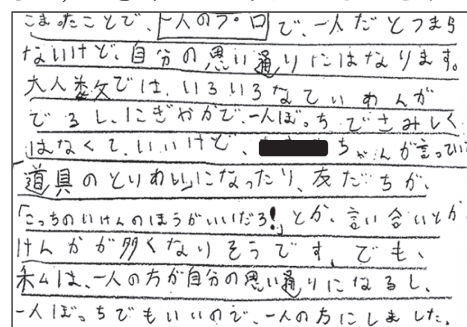 こまったことで、一人のプロで、一人だとつまら
ないけど、自分の思い通りにはなります。
大人数では、いろいろなていあんが
でるし、にぎやかで、一人ぼっちでさみしく
はなくて、いいけど、ちゃんが言ってい
道具のとりあいになったり、友だちが、
「こっちのいけんのほうがいいだろ!」とか、言い合いとか
けんかが多くなりそうです。でも、
私は、一人の方が自分の思い通りになるし、
一人ぼっちでもいいので、一人の方にしました。